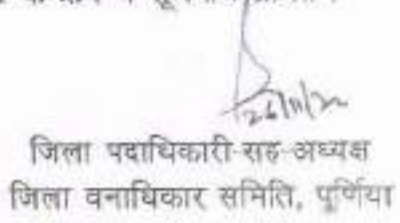 26/11/22
जिला पदाधिकारी-सह-अध्यक्ष
जिला वनाधिकार समिति, पूर्णिया